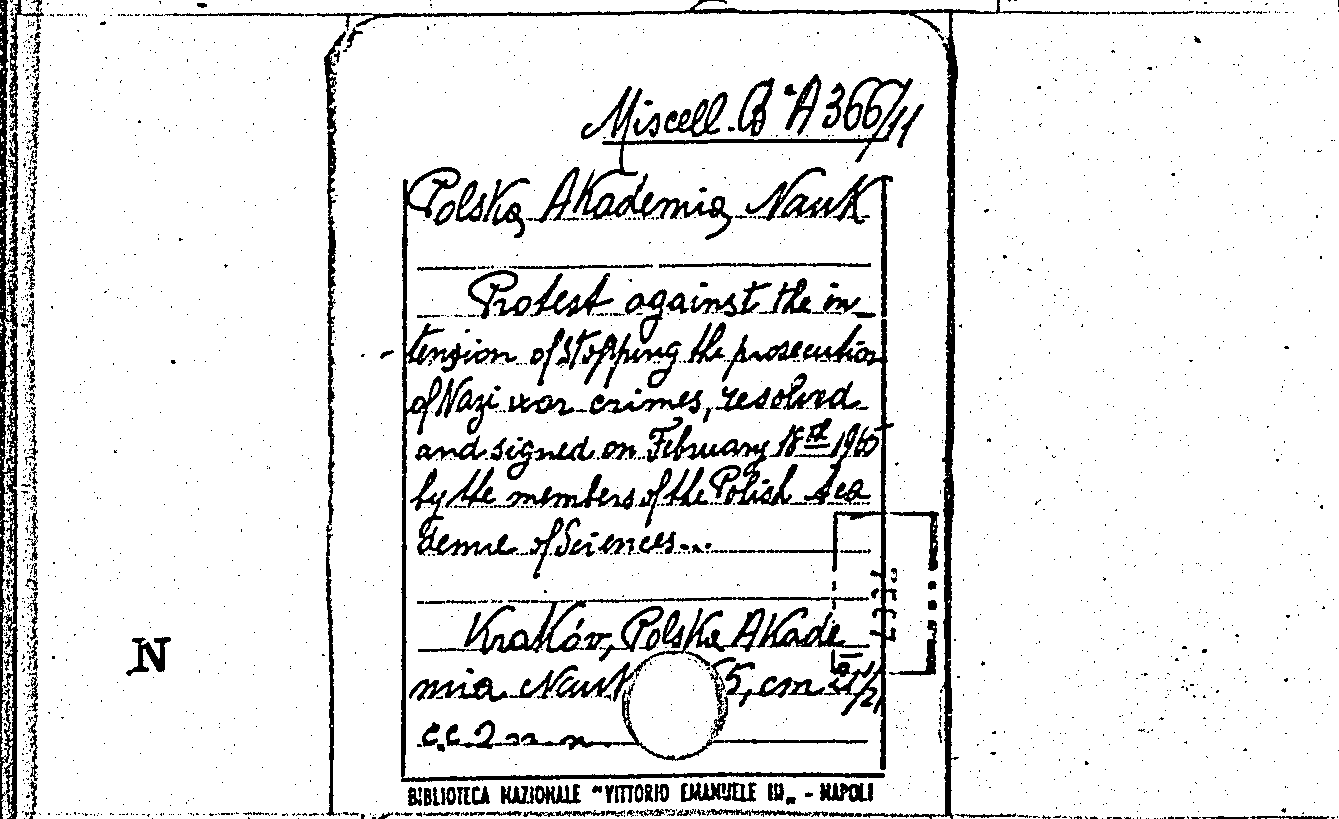 Miscell. B ª A 366/11
Polska Akademia Nauk
Protest against the in_
tension of stopping the prosecution
of Nazi war crimes, resolved
and signed on February 18th 1965
by the members of the Polish Aca
demie of Sciences...
Kraków, Polska Akade_
mia Nauk 5, cm 21 1/2,
c.c. 2 n. n.
N
BIBLIOTECA NAZIONALE "VITTORIO EMANUELE III„ - NAPOLI